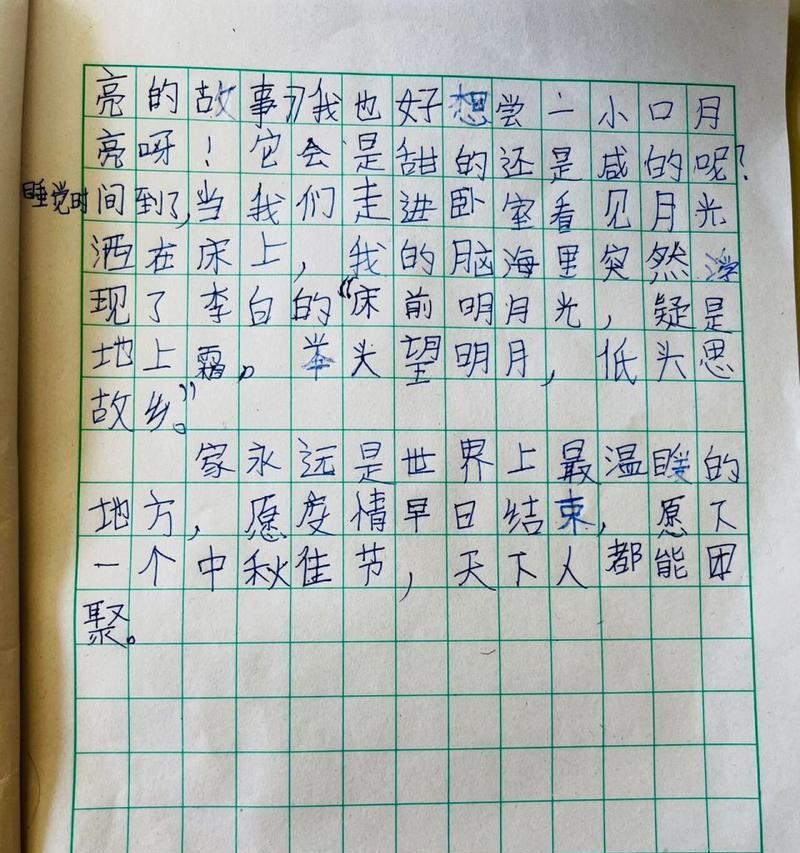 亮的故事我也好想尝一小口月
亮呀！它会是甜的还是咸的呢？
睡觉时间到了,当我们走进卧室看见月光
洒在床上，我的脑海里突然浮
现了李白的“床前明月光，疑是
地上霜。举头望明月，低头思
故乡。”
家永远是世界上最温暖的
地方，愿度情早日结束，愿下
一个中秋佳节，天下人都能团
聚。